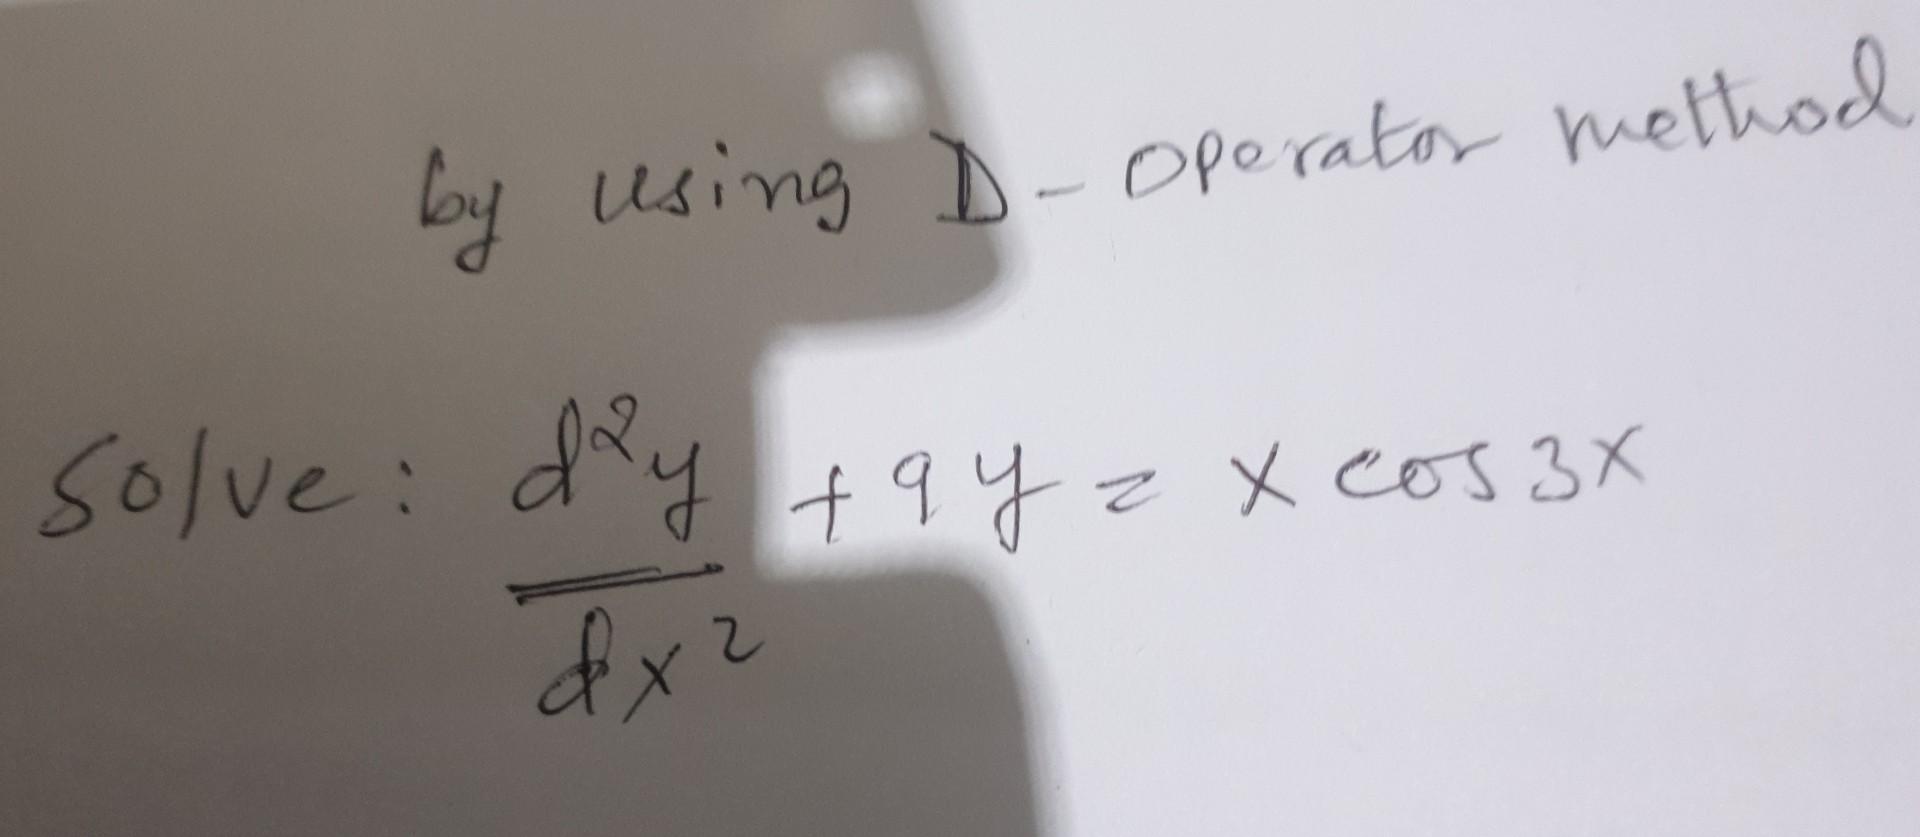 by using D - operator method
Solve: d²y/dx² + 9y = x cos 3x